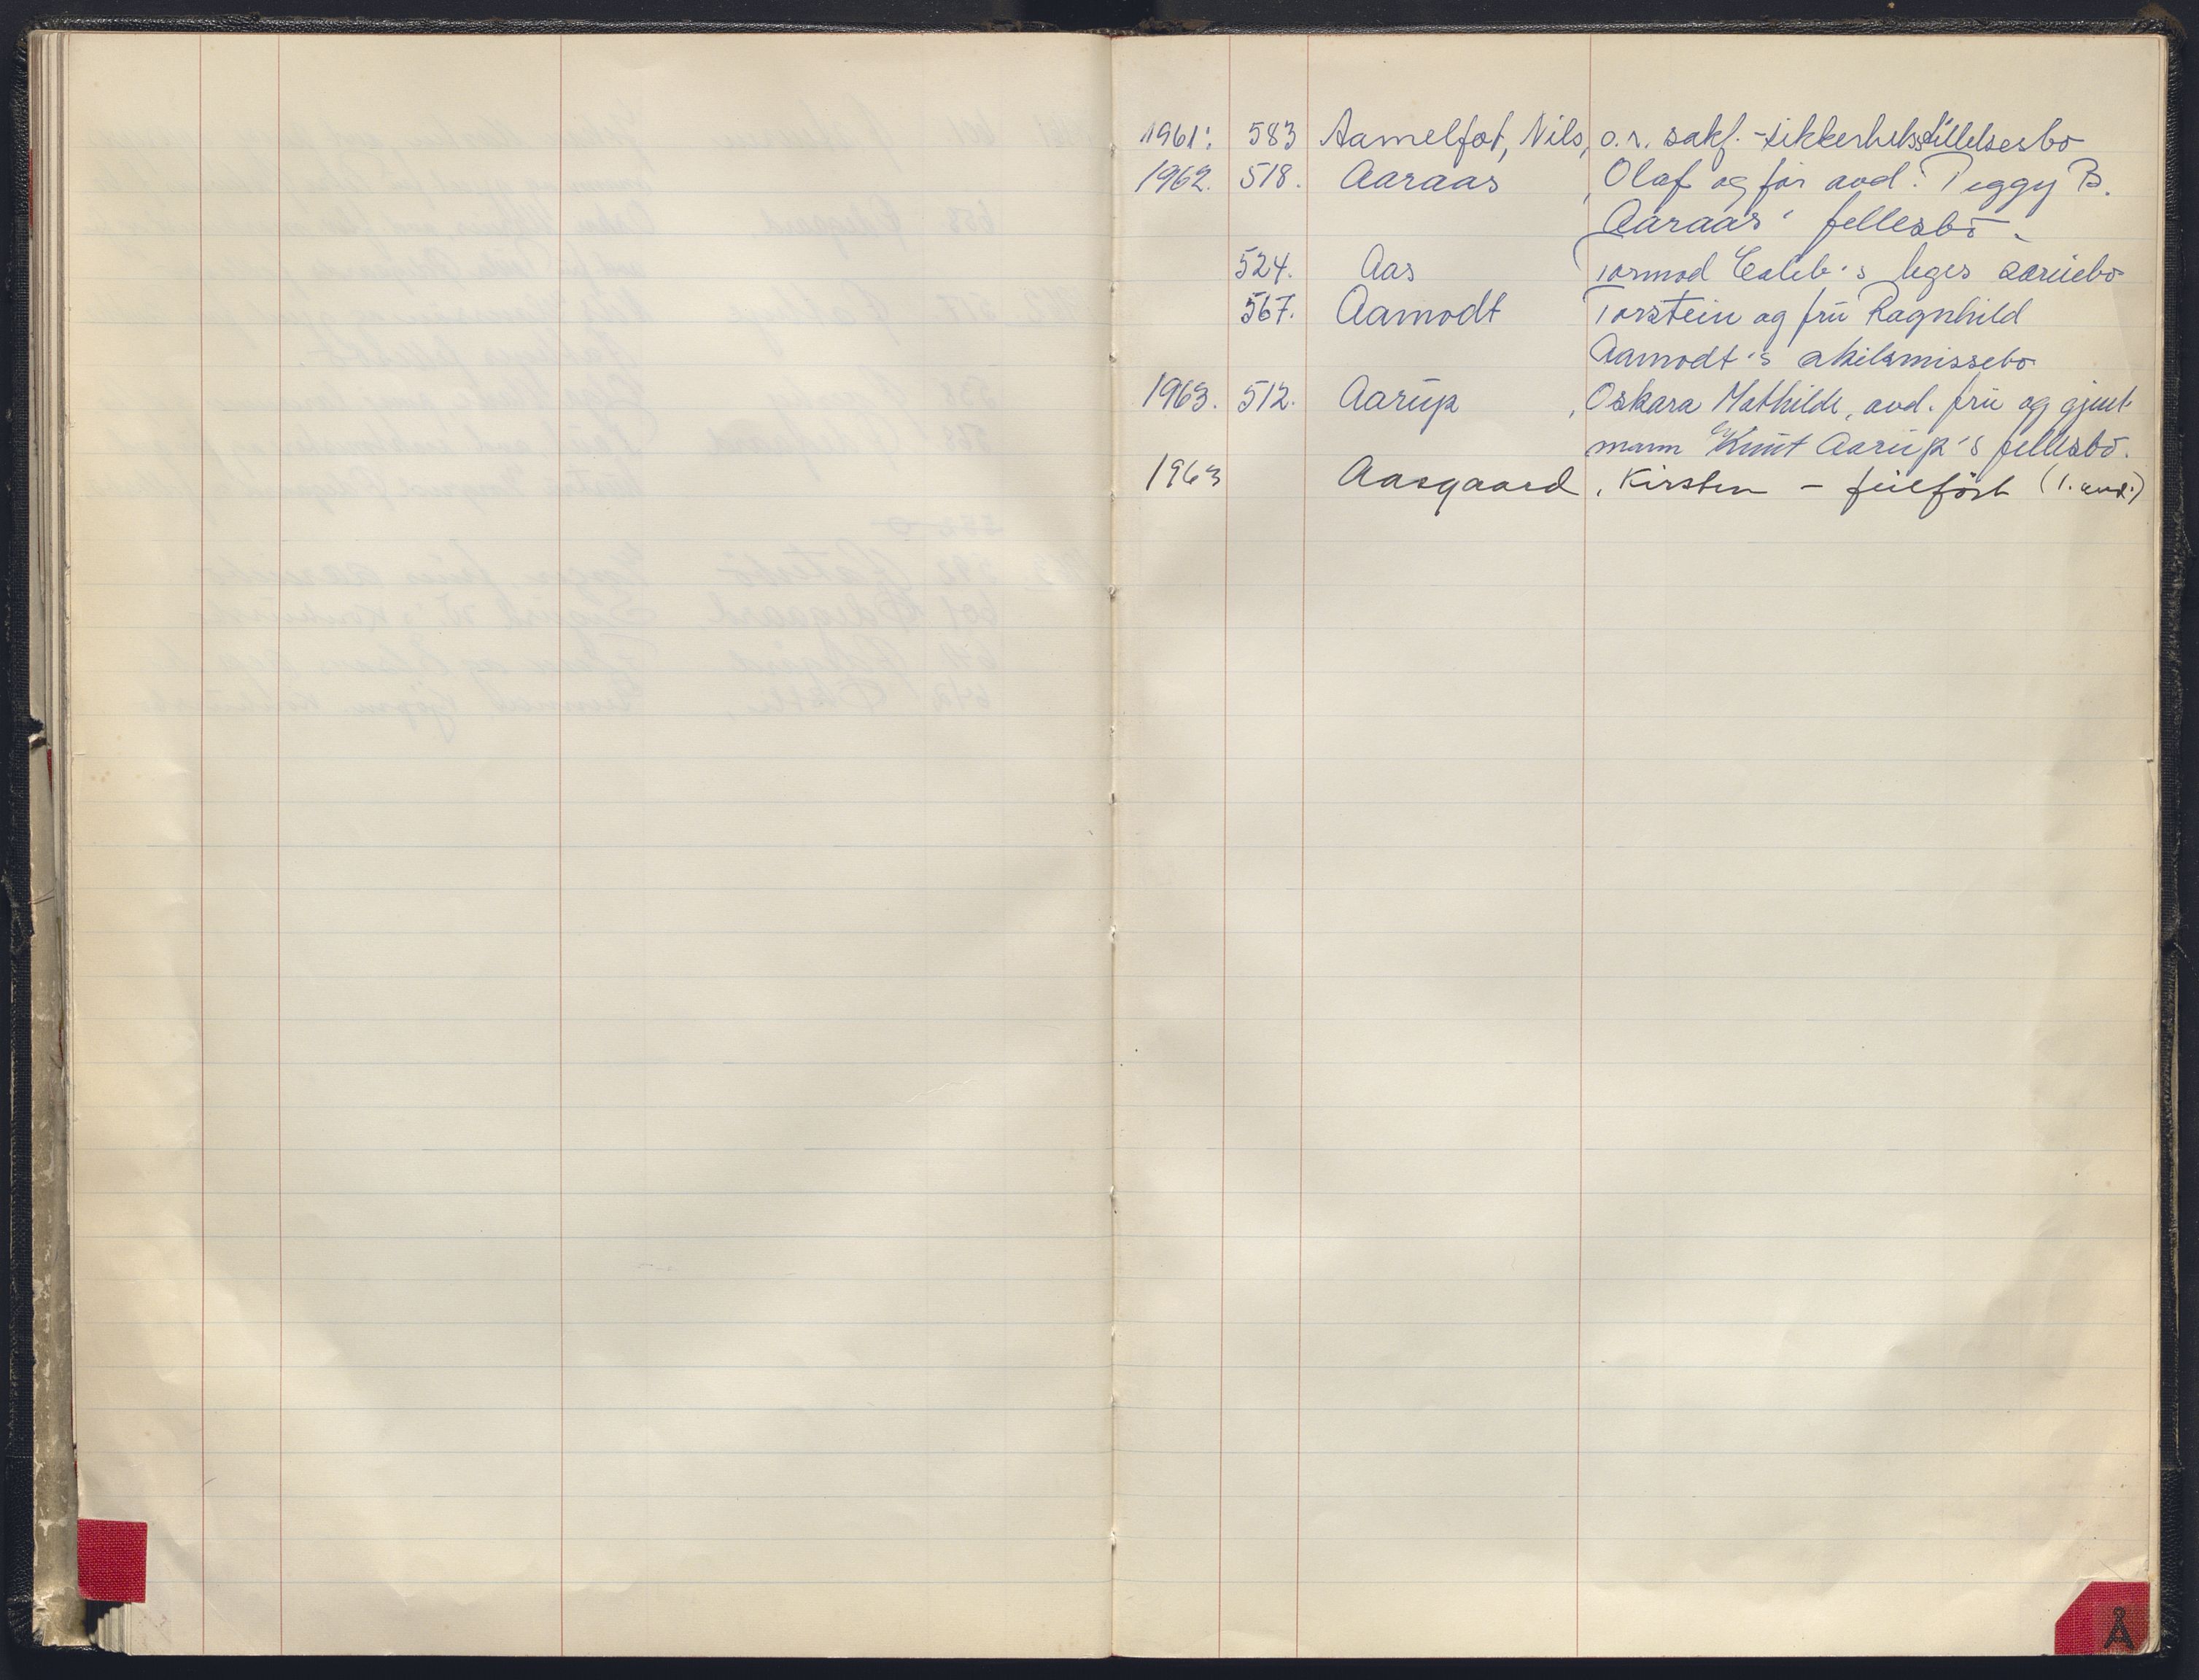 1961: 583 Aamelfot, Nils, o.r. sakf. - sikkerhetsstillelsesbo
1962. 518. Aaraas, Olaf og før avd. Peggy B.
Aaraas' fellesbo.
524. Aas Tormod Caleb's leges særuebo
567. Aamodt Torstein og fru Ragnhild
Aamodt's skilsmissebo
1963. 512. Aarup, Oskara Mathilde, avd. fru og gjenl.
mann Knut Aarup's fellesbo.
1963 Aasgaard, Kirsten - feilført (1. avd.)
Å